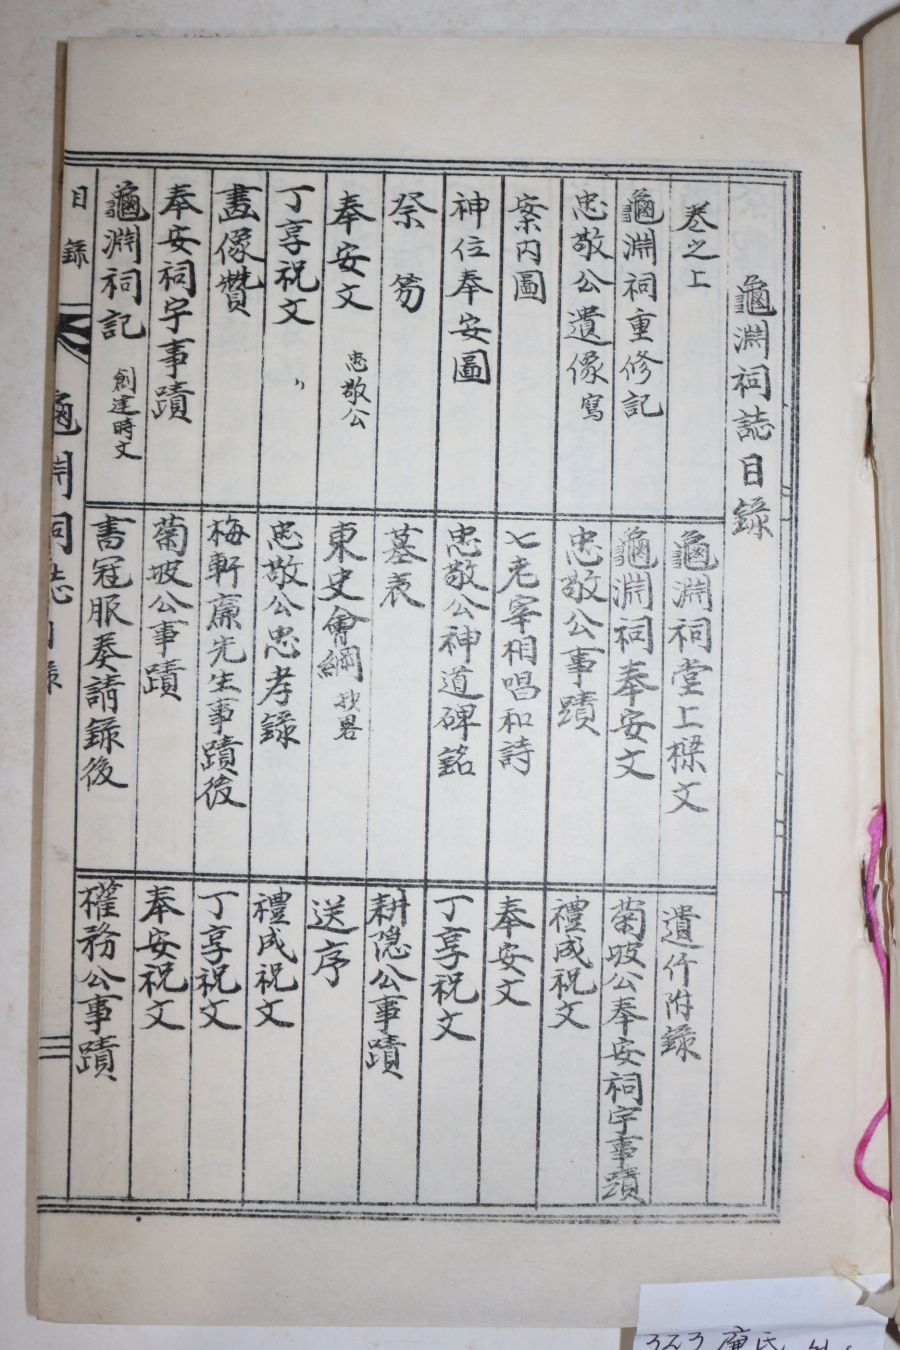 龜淵祠誌目錄
卷之上
龜淵祠重修記
忠敬公遺像寫
案內圖
神位奉安圖
祭笏
奉安文 忠敬公
丁享祝文 〃
畵像贊
奉安祠宇事蹟
龜淵祠記 創建時文
龜淵祠堂上樑文
龜淵祠奉安文
忠敬公事蹟
七老宰相唱和詩
忠敬公神道碑銘
墓表
東史會綱 抄畧
忠敬公忠孝錄
梅軒廉先生事蹟後
菊坡公事蹟
書冠服奏請錄後
遺什附錄
菊坡公奉安祠宇事蹟
禮成祝文
奉安文
丁享祝文
耕隱公事蹟
送序
禮成祝文
丁享祝文
奉安祝文
權務公事蹟
目錄
龜淵祠誌目錄
323 廉氏